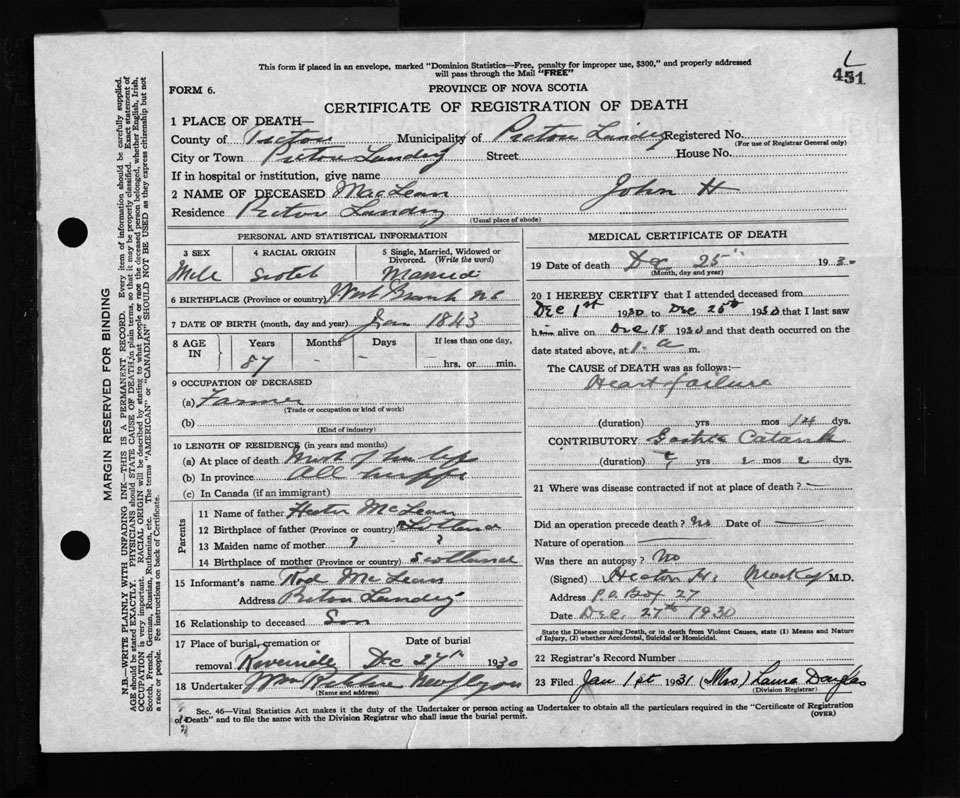 This form if placed in an envelope, marked "Dominion Statistics—Free, penalty for improper use, $300," and properly addressed
will pass through the Mail "FREE"
L
451
FORM 6.
PROVINCE OF NOVA SCOTIA
CERTIFICATE OF REGISTRATION OF DEATH
1 PLACE OF DEATH—
County of Pictou Municipality of Pictou Landing Registered No.
(For use of Registrar General only)
City or Town Pictou Landing Street House No.
If in hospital or institution, give name
2 NAME OF DECEASED MacLean John H
Residence Pictou Landing
(Usual place of abode)
PERSONAL AND STATISTICAL INFORMATION
3 SEX 4 RACIAL ORIGIN 5 Single, Married, Widowed or
Divorced. (Write the word)
Male Scotch Married
6 BIRTHPLACE (Province or country) West Branch NS
7 DATE OF BIRTH (month, day and year) Jan 1843
8 AGE IN Years Months Days If less than one day,
87 - - hrs. or min.
9 OCCUPATION OF DECEASED
(a) Farmer
(Trade or occupation or kind of work)
(b)
(Kind of industry)
10 LENGTH OF RESIDENCE (in years and months)
(a) At place of death Most of his life
(b) In province All his life
(c) In Canada (if an immigrant)
Parents
11 Name of father Hector McLean
12 Birthplace of father (Province or country) Scotland
13 Maiden name of mother ? ?
14 Birthplace of mother (Province or country) Scotland
15 Informant's name Rod McLean
Address Pictou Landing
16 Relationship to deceased Son
17 Place of burial, cremation or Date of burial
removal Riverside Dec 27th 1930
18 Undertaker
(Name and address)
MEDICAL CERTIFICATE OF DEATH
19 Date of death Dec 25 1930
(Month, day and year)
20 I HEREBY CERTIFY that I attended deceased from
Dec 1st 1930 to Dec 25th 1930 that I last saw
him alive on Dec 18 1930 and that death occurred on
date stated above, at 1. a m.
The CAUSE of DEATH was as follows:—
Heart failure
(duration) yrs mos 14 dys.
CONTRIBUTORY
(duration) yrs 2 mos 2 dys.
21 Where was disease contracted if not at place of death? —
Did an operation precede death? No Date of —
Nature of operation —
Was there an autopsy? No
(Signed) M.D.
Address P.O. Box 27
Date Dec. 27th 1930
State the Disease causing Death, or in death from Violent Causes, state (1) Means and Nature
of Injury, (2) whether Accidental, Suicidal or Homicidal.
22 Registrar's Record Number
23 Filed Jan 1st 1931 (Mrs) Laura Douglas
(Division Registrar)
Sec. 46—Vital Statistics Act makes it the duty of the Undertaker or person acting as Undertaker to obtain all the particulars required in the "Certificate of Registration
of Death" and to file the same with the Division Registrar who shall issue the burial permit. (OVER)
MARGIN RESERVED FOR BINDING
N.B.—WRITE PLAINLY WITH UNFADING INK—THIS IS A PERMANENT RECORD. Every item of information should be carefully supplied.
AGE should be stated EXACTLY. PHYSICIANS should STATE CAUSE OF DEATH in plain terms, so that it may be properly classified. Exact statement of
OCCUPATION is very important. RACIAL ORIGIN will be described by stating to what people or race the deceased person belonged, whether English, Irish,
Scotch, French, German, Russian, Ruthenian, etc. The terms "AMERICAN" or "CANADIAN" SHOULD NOT BE USED as they express citizenship but not
a race or people. See instructions on back of Certificate.